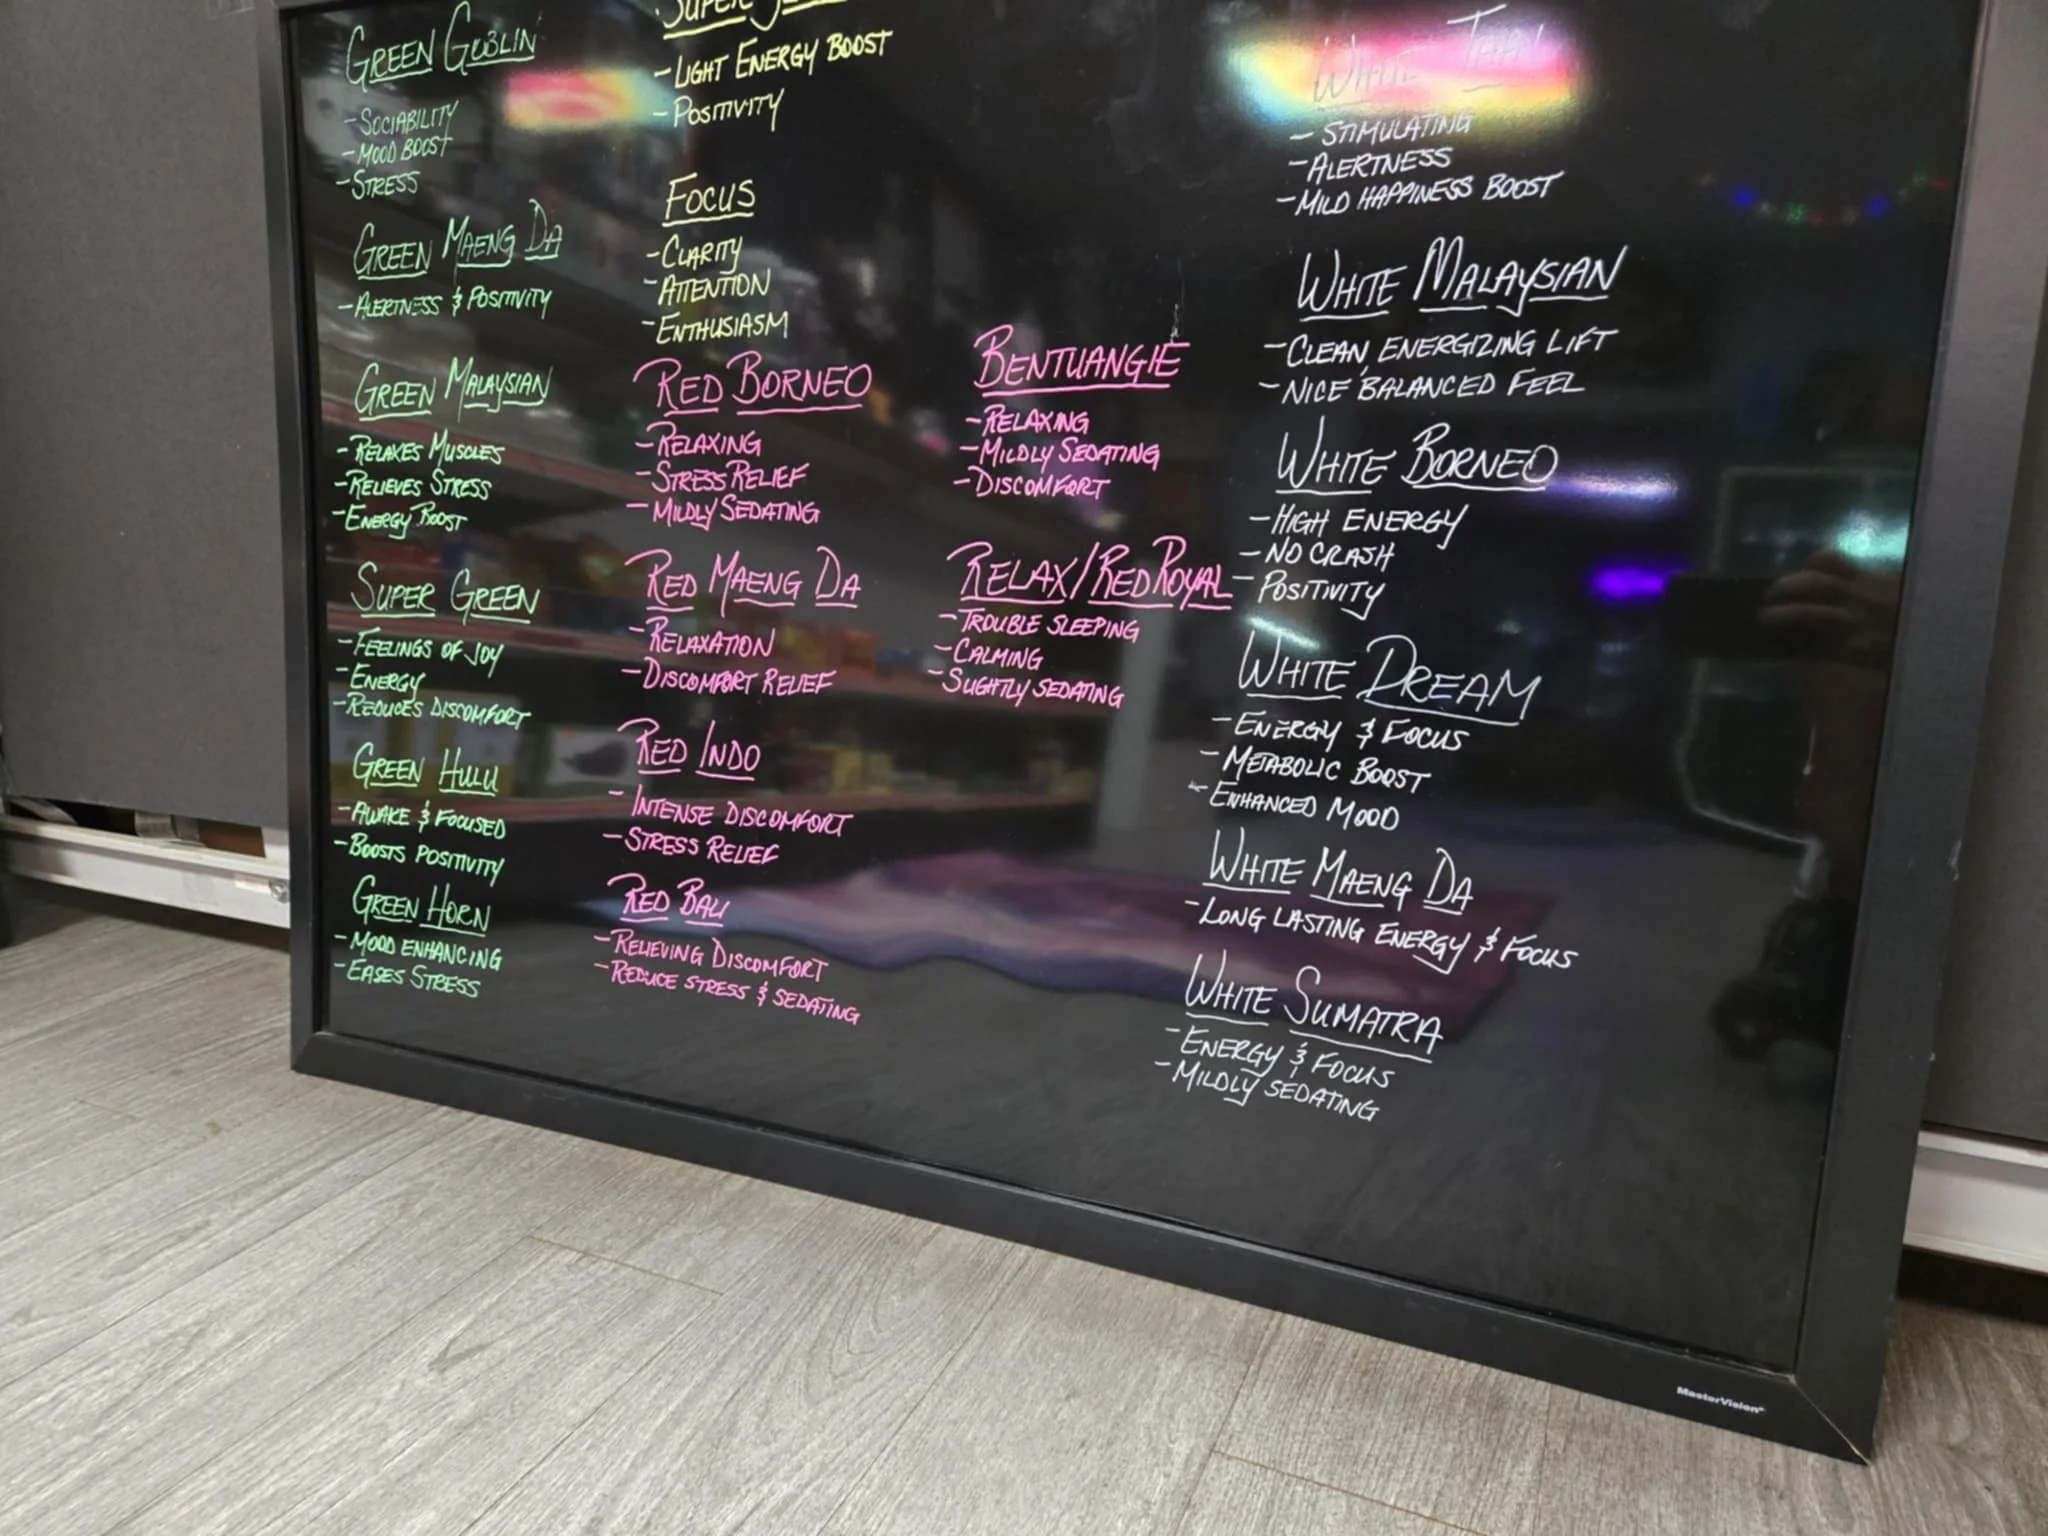 GREEN GOBLIN
- SOCIABILITY
- MOOD BOOST
- STRESS
GREEN MAENG DA
- ALERTNESS & POSITIVITY
GREEN MALAYSIAN
- RELAXES MUSCLES
- RELIEVES STRESS
- ENERGY BOOST
SUPER GREEN
- FEELINGS OF JOY
- ENERGY
- REDUCES DISCOMFORT
GREEN HULU
- AWAKE & FOCUSED
- BOOSTS POSITIVITY
GREEN HORN
- MOOD ENHANCING
- EASES STRESS
SUPER
- LIGHT ENERGY BOOST
- POSITIVITY
FOCUS
- CLARITY
- ATTENTION
- ENTHUSIASM
RED BORNEO
- RELAXING
- STRESS RELIEF
- MILDLY SEDATING
RED MAENG DA
- RELAXATION
- DISCOMFORT RELIEF
RED INDO
- INTENSE DISCOMFORT
- STRESS RELIEF
RED BALI
- RELIEVING DISCOMFORT
- REDUCE STRESS & SEDATING
BENTUANGIE
- RELAXING
- MILDLY SEDATING
- DISCOMFORT
RELAX/RED ROYAL
- TROUBLE SLEEPING
- CALMING
- SLIGHTLY SEDATING
WHITE THAI
- STIMULATING
- ALERTNESS
- MILD HAPPINESS BOOST
WHITE MALAYSIAN
- CLEAN, ENERGIZING LIFT
- NICE BALANCED FEEL
WHITE BORNEO
- HIGH ENERGY
- NO CRASH
- POSITIVITY
WHITE DREAM
- ENERGY & FOCUS
- METABOLIC BOOST
- ENHANCED MOOD
WHITE MAENG DA
- LONG LASTING ENERGY & FOCUS
WHITE SUMATRA
- ENERGY & FOCUS
- MILDLY SEDATING
MasterVision